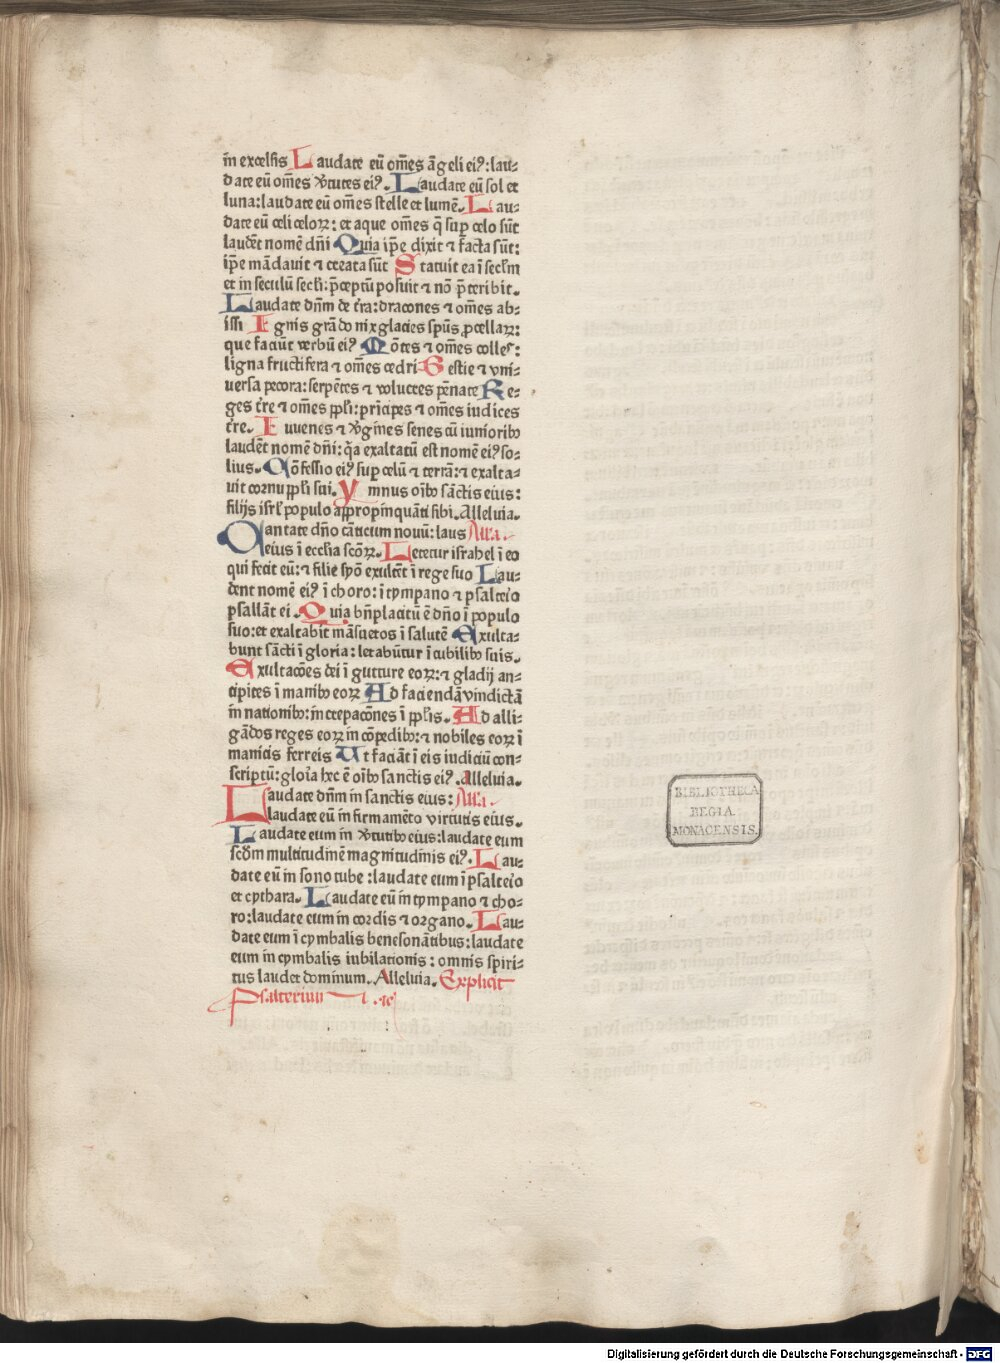 in excelsis Laudate eū om̄es āgeli eiꝰ: lau⸗
date eū om̄es v̓tutes eiꝰ. Laudate eū sol et
luna: laudate eū om̄es stelle et lumē. Lau⸗
date eū celi celoꝝ: et aque om̄es q̄ suꝑ celo sūt
laudēt nomē dn̄i Quia ip̄e dixit ⁊ facta sūt:
ip̄e mādauit ⁊ creata sūt Statuit ea ī secl̄m
et in seculū secl̄i: p̄ceptū posuit ⁊ nō p̄teribit.
Laudate dn̄m de t̓ra: dracones ⁊ om̄es ab⸗
issi Ignis grādo nix glacies sp̄ūs ꝓcellaꝝ:
que faciūt verbū eiꝰ Mōtes ⁊ om̄es colles:
ligna fructifera ⁊ om̄es cedri Bestie ⁊ vni⸗
uersa pecora: serpētes ⁊ volucres pēnate Re⸗
ges t̓re ⁊ om̄es ppl̄i: prīcipes ⁊ om̄es iudices
t̓re. Iuuenes ⁊ v̓gines senes cū iuniorib᷒
laudēt nomē dn̄i: q̄a exaltatū est nomē eiꝰ so⸗
lius. Cōfessio eiꝰ suꝑ celū ⁊ terrā: ⁊ exalta⸗
uit cornu ppl̄i sui. Ymnus oīb᷒ sāctis eius:
filijs isrl̓ populo appropinquāti sibi. Alleluia.
Cantate dn̄o cāticum nouū: laus Alla.
eius ī ecclīa scōꝝ. Letetur israhel ī eo
qui fecit eū: ⁊ filie syō exultēt ī rege suo Lau⸗
dent nomē eiꝰ ī choro: ī tympano ⁊ psalteīo
psallāt ei. Quia bn̄placitū ē dn̄o ī populo
suo: et exaltabit māsuetos ī salutē Exulta⸗
bunt sācti ī gloria: letabūtur ī cubilib᷒ suis.
Exultacōes dei ī gutture eoꝝ: ⁊ gladij an⸗
cipites ī manib᷒ eoꝝ Ad faciendā vindictā
in nationib᷒: increpacōnes ī ppl̄is. Ad alli⸗
gādos reges eoꝝ in cōpedib᷒: ⁊ nobiles eoꝝ ī
manicis ferreis Ut faciāt ī eis iudiciū con⸗
scriptū: gloīa hec ē oīb᷒ sanctis eiꝰ. Alleluia.
Laudate dn̄m in sanctis eius: Alla.
laudate eū in firmamēto virtutis eiꝰs.
Laudate eum in v̓tutib᷒ eius: laudate eum
scd̄m multitudinē magnitudinis eiꝰ. Lau⸗
date eū in sono tube: laudate eum ī psalteīo
et cythara. Laudate eū in tympano ⁊ cho⸗
ro: laudate eum in cordis ⁊ organo. Lau⸗
date eum ī cymbalis benesonātibus: laudate
eum in cymbalis iubilationis: omnis spiri⸗
tus laudet dominum. Alleluia. Explicit
Psalterium
BIBLIOTHECA
REGIA
MONACENSIS.
Digitalisierung gefördert durch die Deutsche Forschungsgemeinschaft - DFG